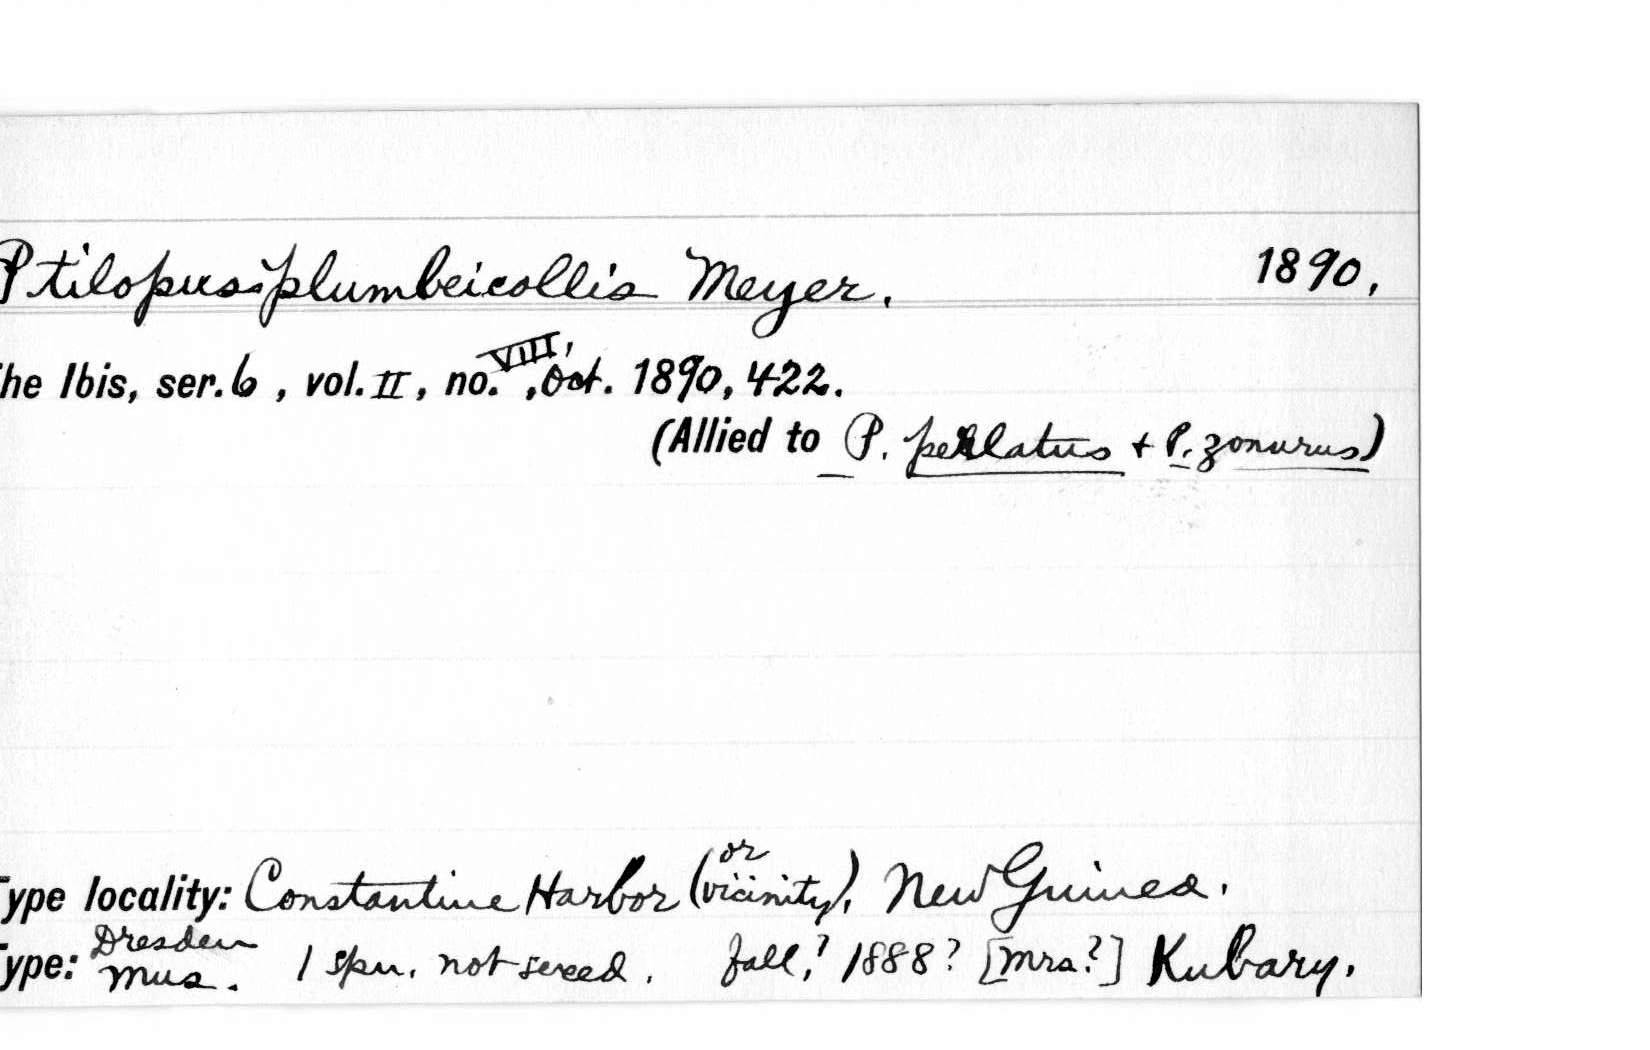 Ptilopus plumbeicollis Meyer. 1890.
he Ibis, ser. 6, vol. II, no. VIII, Oct. 1890, 422.
(Allied to P. perlatus + P. zonurus)
Type locality: Constantine Harbor (or vicinity), New Guinea.
Type: Dresden Mus. 1 spn. not sexed. fall,? 1888? [Mrs?] Kubary.